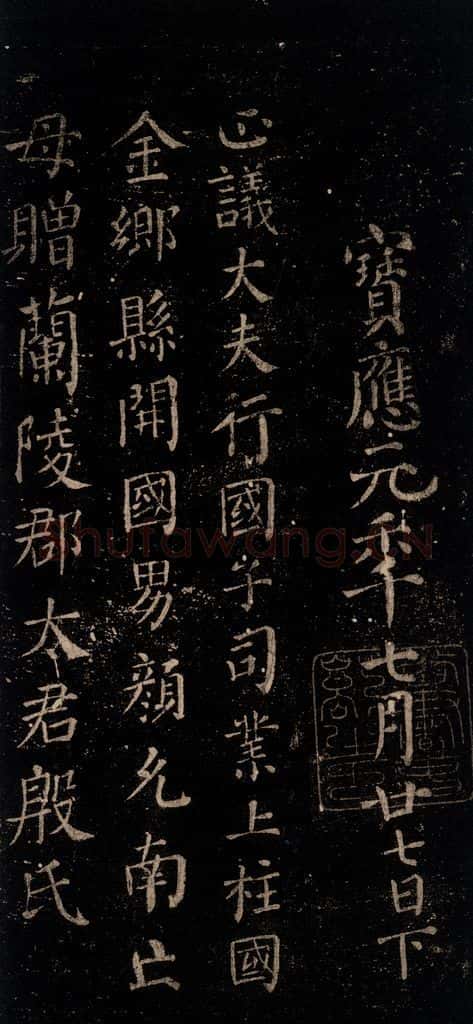 寶應元秊七月廿七日下
正議大夫行國子司業上柱國
金鄉縣開國男顏允南亡
母贈蘭陵郡太君殷氏
Shufawang.CN